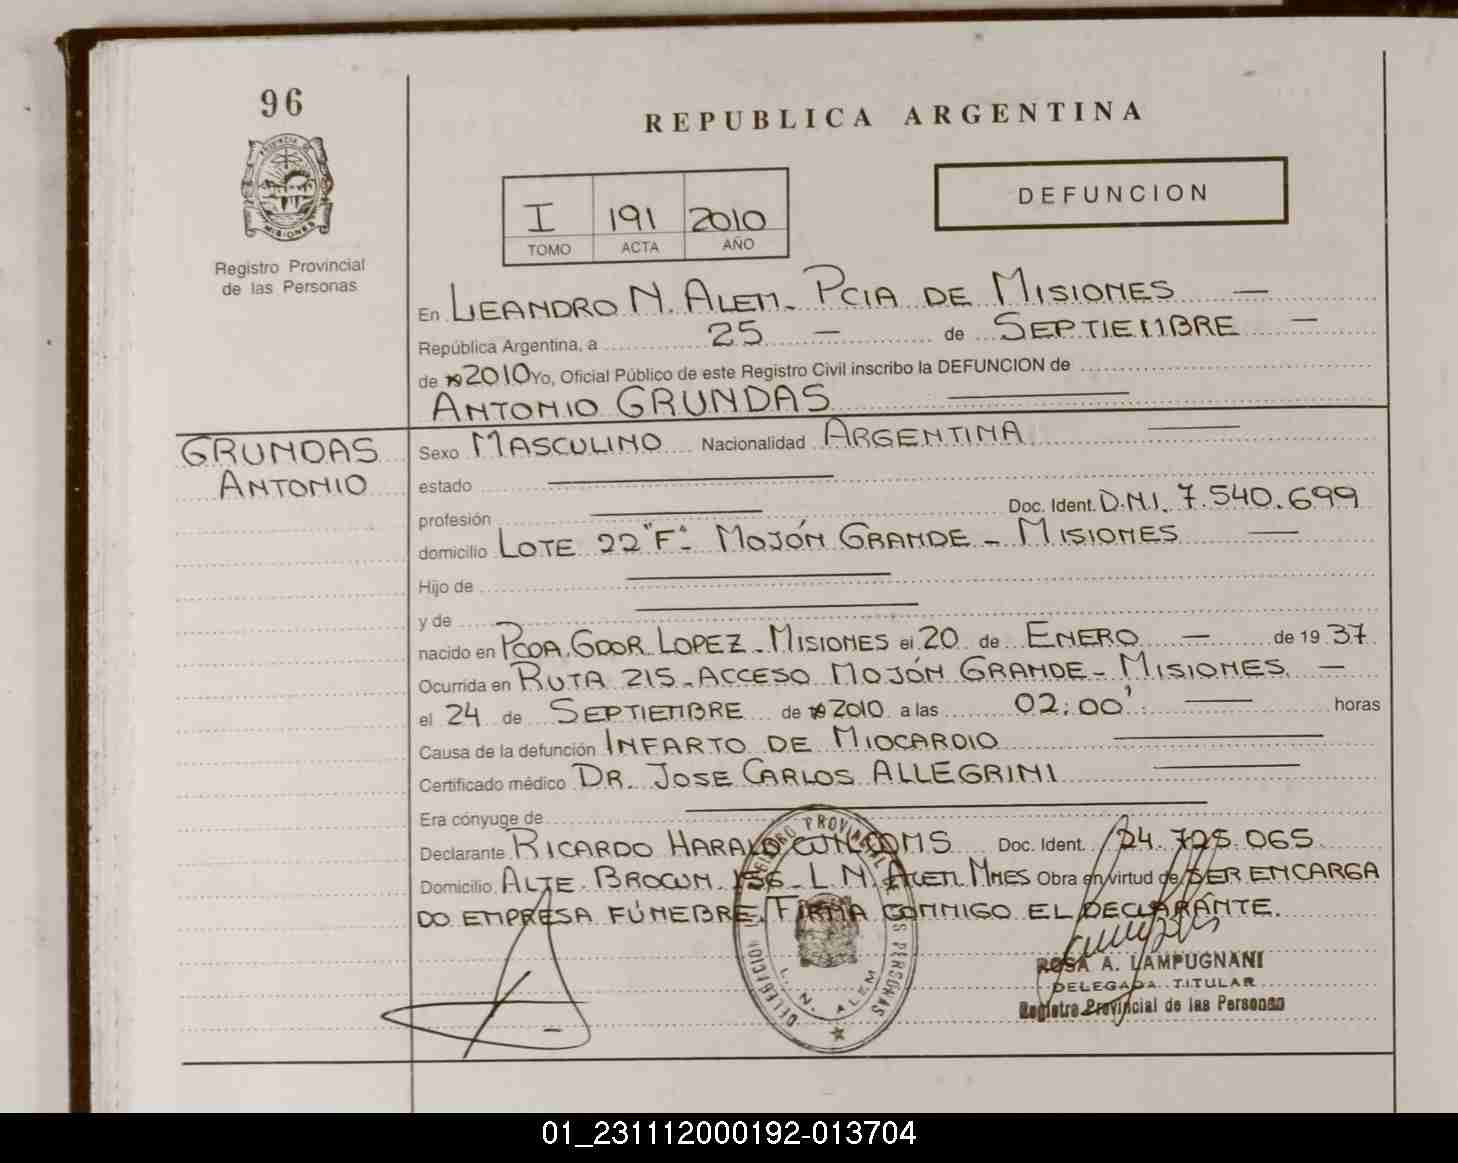 96
REPUBLICA ARGENTINA
PROVINCIA DE MISIONES
Registro Provincial
de las Personas
I 191 2010
TOMO ACTA AÑO
DEFUNCION
En LEANDRO N. ALEM - PCIA DE MISIONES —
República Argentina, a 25 — de SEPTIEMBRE —
de 2010 Yo, Oficial Público de este Registro Civil inscribo la DEFUNCION de
ANTONIO GRUNDAS
GRUNDAS
ANTONIO
Sexo MASCULINO Nacionalidad ARGENTINA
estado
profesión Doc. Ident. D.N.I. 7.540.699
domicilio LOTE 22 "F" - MOJÓN GRANDE - MISIONES —
Hijo de
y de
nacido en PCOA. GDOR LOPEZ - MISIONES el 20 de ENERO — de 19 37
Ocurrida en RUTA 215 - ACCESO MOJÓN GRANDE - MISIONES. —
el 24 de SEPTIEMBRE de 2010 a las 02:00' horas
Causa de la defunción INFARTO DE MIOCARDIO
Certificado médico DR. JOSE CARLOS ALLEGRINI
Era cónyuge de
Declarante RICARDO HARALD Doc. Ident. 24.725.065
Domicilio ALTE. BROWN 156 - L.N. ALEM. MNES Obra en virtud de SER ENCARGA
DO EMPRESA FÚNEBRE. FIRMA CONMIGO EL DECLARANTE.
REGISTRO PROVINCIAL DE LAS PERSONAS
DELEGACION
L. N. ALEM
ROSA A. LAMPUGNANI
DELEGADA TITULAR
Registro Provincial de las Personas
01_231112000192-013704